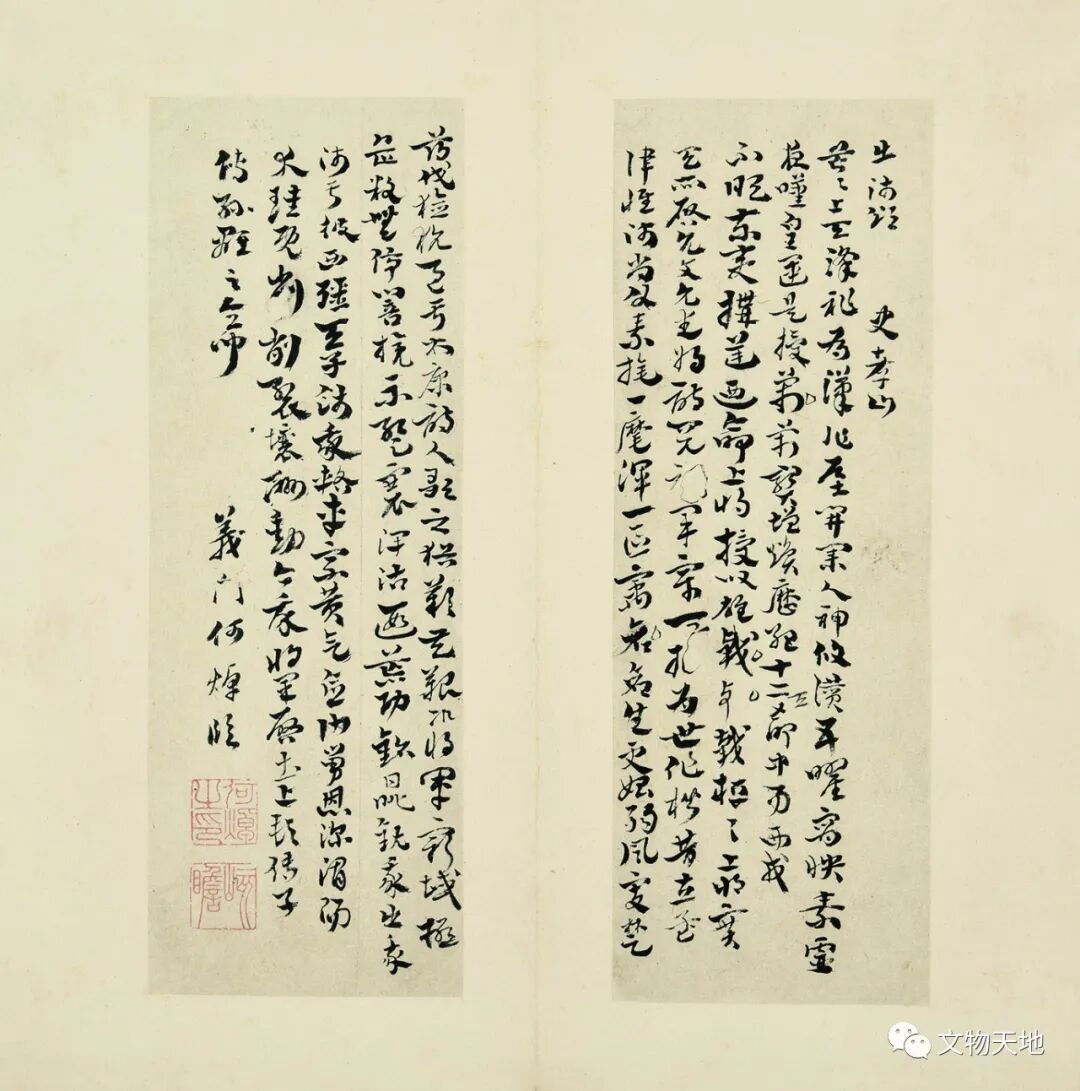 出師頌 史孝山
茫茫上天降祚為漢作基開業人神攸讚五曜宵映素靈
夜嘆皇運是授萬寶增煥歷紀十二天命中易西戎
不順東夷構逆西命上將授以雄戟桓桓上將實
天所啓允文允武明詩閱禮百揆為世作楷昔在孟
津惟師尚父素旄一麾渾一區寓蒼生更始朔風變楚
薄伐獫狁至于太原詩人歌之猶嘆其艱況將軍窮域極
邊鼓無停響旗不蹔褰澤沾遐荒功銘鼎鉉我出我
師于彼西疆天子餞我輅車乘黃言念伯舅恩深渭陽
介珪既削裂壤酬勳今我將軍啓土上郡傳子
傳孫顯顯令問 義門何焯臨
何焯之印
屺瞻
文物天地